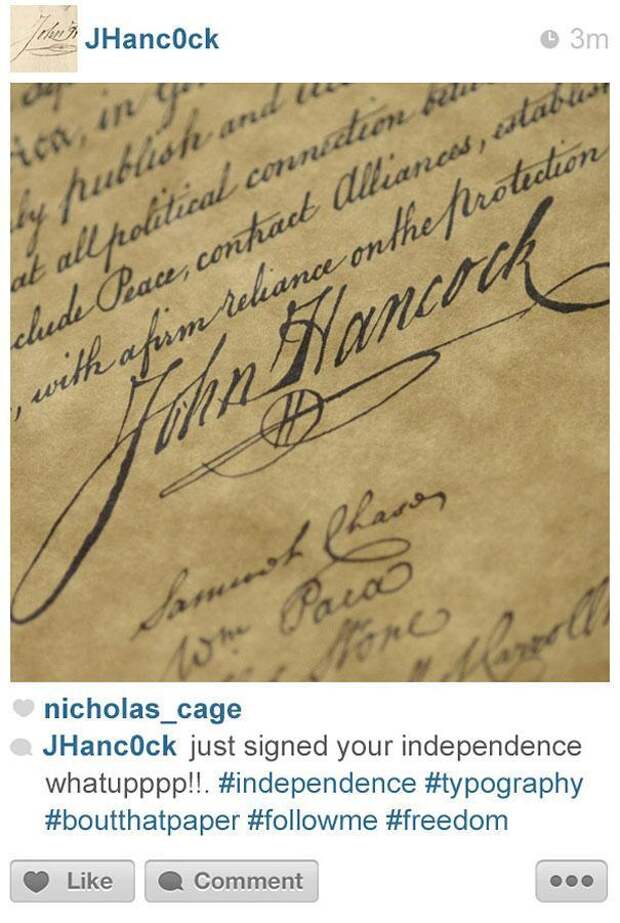 JHanc0ck 3m
in
publish and
at all political connection
clude Peace, contract Alliances, establish
, with a firm reliance on the protection
John Hancock
Samuel Chase
Wm Paca
Stone
Carroll
nicholas_cage
JHanc0ck just signed your independence
whatupppp!!. #independence #typography
#boutthatpaper #followme #freedom
Like Comment